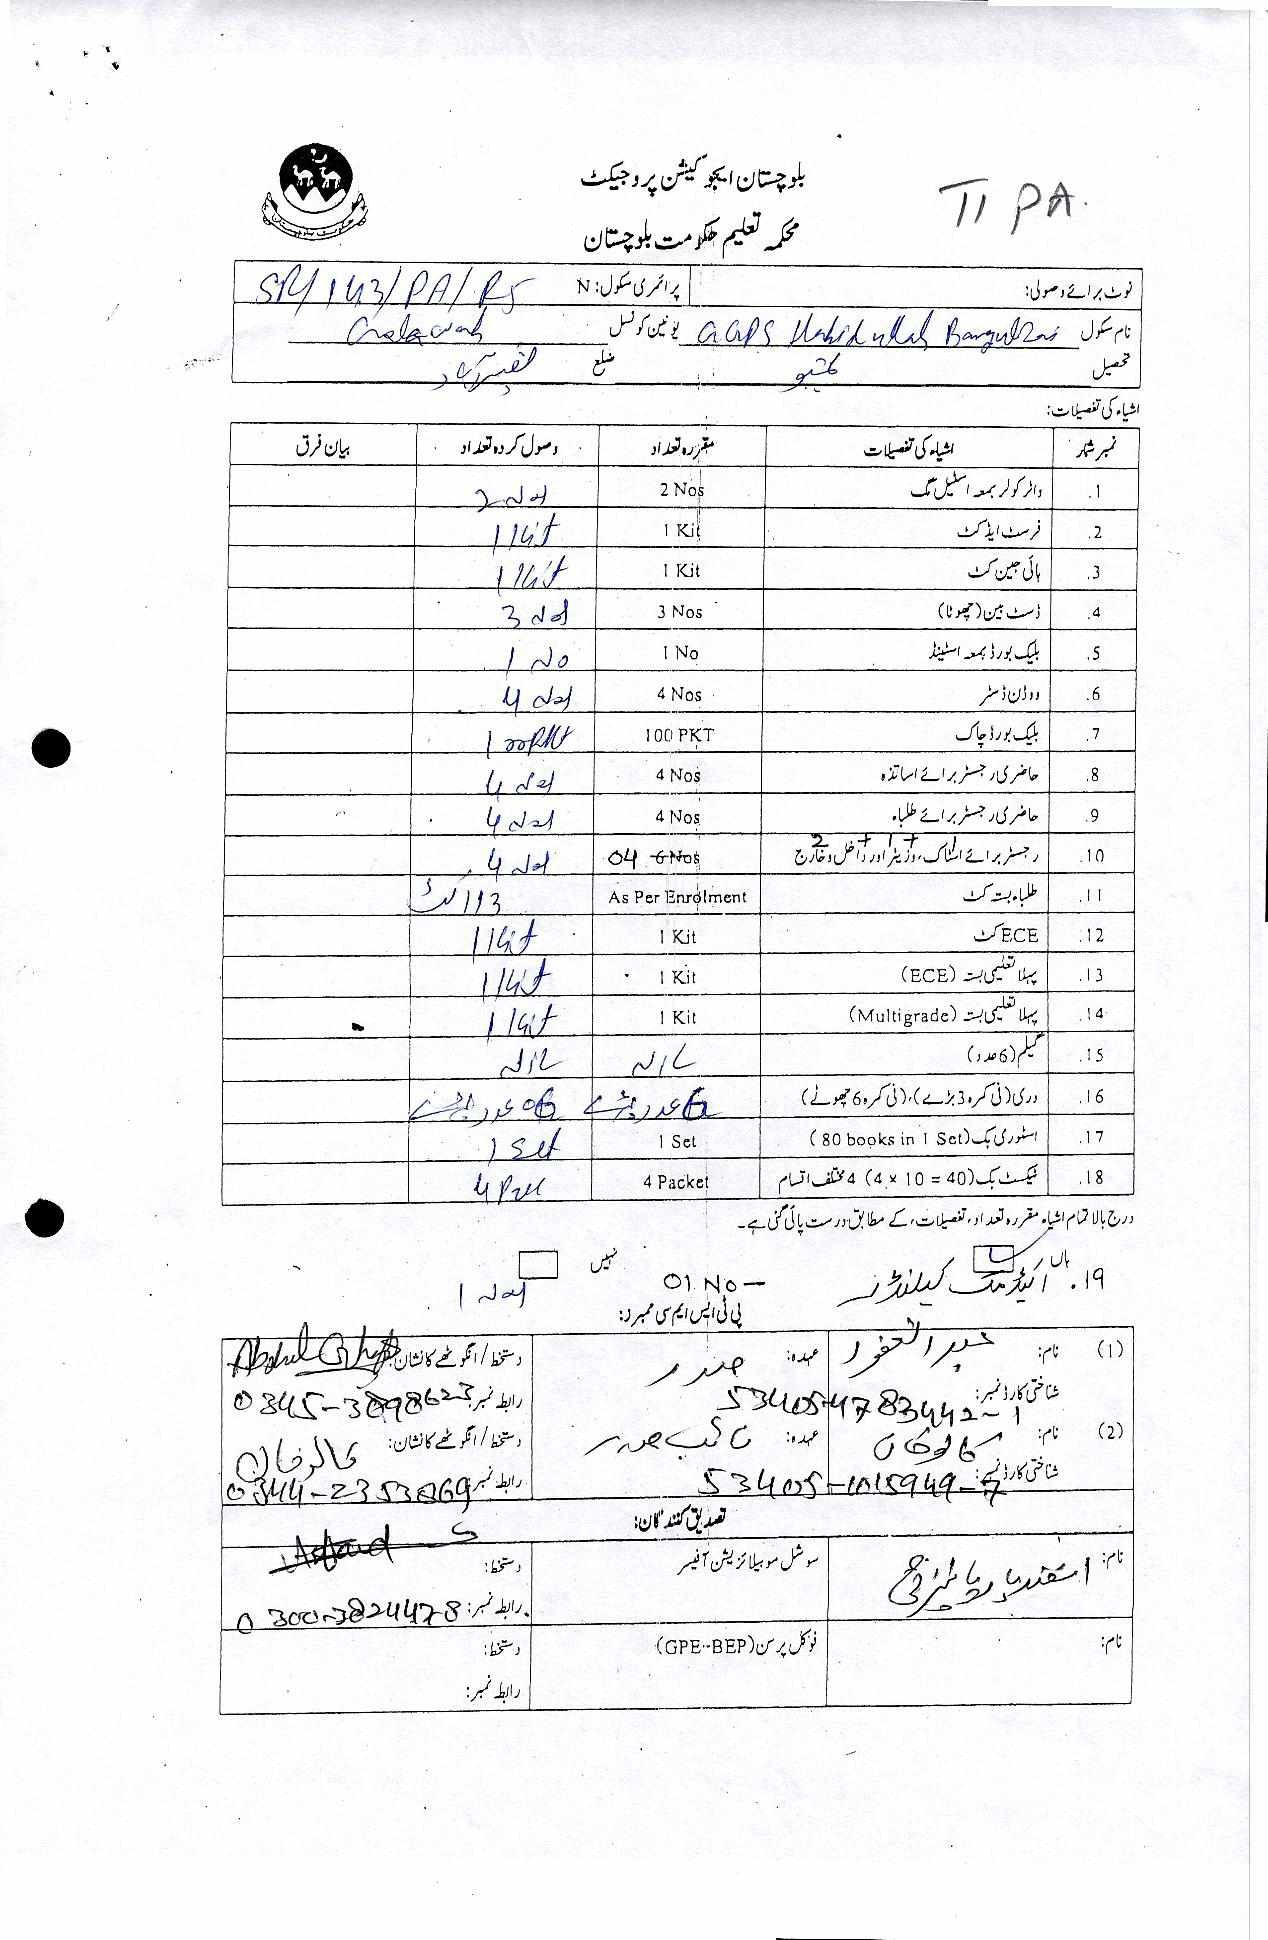 بلوچستان ایجوکیشن پروجیکٹ
T1 PA.
محکمہ تعلیم حکومت بلوچستان
نوٹ برائے وصولی: پرائمری سکول: N SP/143/PA/R5
نام سکول GGPS Bangulzai یونین کونسل
تحصیل ضلع نصیرآباد
اشیاء کی تفصیلات:
نمبر شمار اشیاء کی تفصیلات مقررہ تعداد وصول کردہ تعداد بیان فرق
1. واٹر کولر بمعہ اسٹیل مگ 2 Nos 2 Nos
2. فرسٹ ایڈ کٹ 1 Kit 1 Kit
3. ہائی جین کٹ 1 Kit 1 Kit
4. ڈسٹ بین (چھوٹا) 3 Nos 3 Nos
5. بلیک بورڈ بمعہ اسٹینڈ 1 No 1 No
6. ووڈن ڈسٹر 4 Nos 4 Nos
7. بلیک بورڈ چاک 100 PKT 100 PKT
8. حاضری رجسٹر برائے اساتذہ 4 Nos 4 Nos
9. حاضری رجسٹر برائے طلباء 4 Nos 4 Nos
2 + 1 + 1
10. رجسٹر برائے اسٹاک، وزیٹر اور داخل و خارج 04 6 Nos 4 Nos
11. طلباء بستہ کٹ As Per Enrolment 113 کٹ
12. ECE کٹ 1 Kit 1 Kit
13. پہلا تعلیمی بستہ (ECE) 1 Kit 1 Kit
14. پہلا تعلیمی بستہ (Multigrade) 1 Kit 1 Kit
15. گیم (6 عدد) NIL NIL
16. دری (فی کمرہ 3 بڑے)، (فی کمرہ 6 چھوٹے) 6 عدد بڑے 06 عدد بڑے
17. اسٹوری بک (80 books in 1 Set) 1 Set 1 Set
18. ٹیکسٹ بک (4 x 10 = 40) 4 مختلف اقسام 4 Packet
درج بالا تمام اشیاء مقررہ تعداد، تفصیلات، کے مطابق درست پائی گئی ہے۔
ہاں نہیں
19. اکیڈمک کیلنڈر 01 No – 1 Nos
پی ٹی ایس ایم سی ممبرز:
(1) نام: عبدالغفور عہدہ: صدر دستخط / انگوٹھے کا نشان:
شناختی کارڈ نمبر: 53405-4783442-1 رابطہ نمبر: 0345-3898623
(2) نام: کالو خان عہدہ: نائب صدر دستخط / انگوٹھے کا نشان: کالو خان
شناختی کارڈ نمبر: 53405-1015949-7 رابطہ نمبر: 0344-2353069
تصدیق کنندگان:
نام: سوشل موبیلائزیشن آفیسر دستخط:
رابطہ نمبر: 0300-3824478
نام: فوکل پرسن (GPE-BEP) دستخط:
رابطہ نمبر: